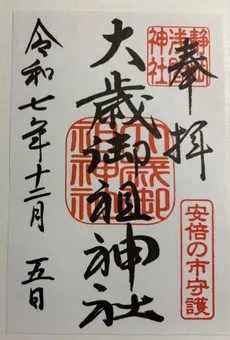 奉拝
静岡
浅間
神社
大歳御祖神社
安倍の市守護
令和七年十二月 五日